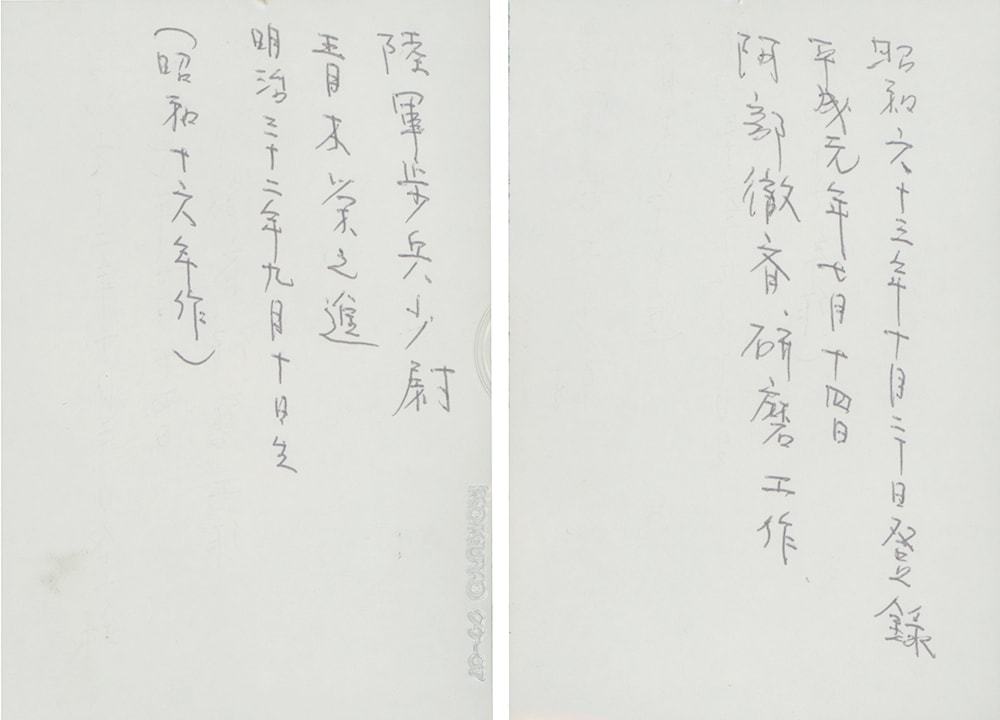 昭和六十三年十月二十日登録
平成元年七月十四日
阿部徹斉研磨工作
陸軍歩兵少尉
青木栄之進
明治三十二年九月十日生
（昭和十六年作）